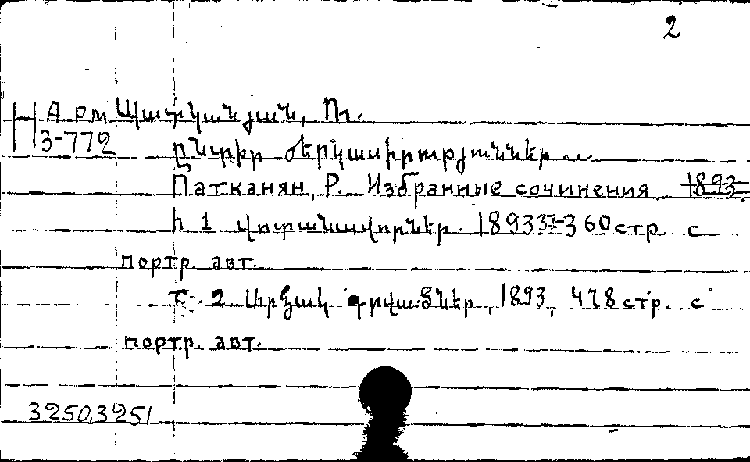 2
Н Арм Պատկանյան, Ռ.
3-772
ընտիր երկասիրություններ ...
Патканян, Р. Избранные сочинения 1893.
հ 1 վոտանավորներ. 1893 360 стр с
портр. авт.
т. 2 Արձակ գրվածքներ, 1893, 478 стр. с
портр. авт.
3250,3251